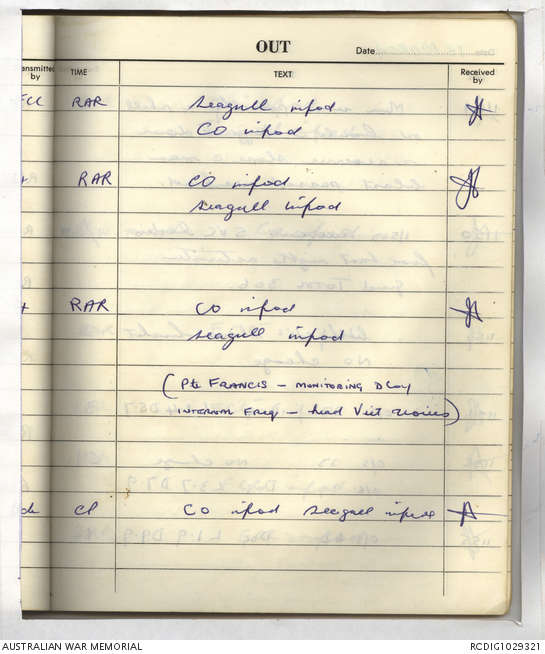 OUT
Date
Transmitted by TIME TEXT Received by
RAR Seagull infod
CO infod
RAR CO infod
Seagull infod
RAR CO infod
Seagull infod
(Pte FRANCIS - MONITORING D Coy
INTERNAL Freq - heard Viet voices)
CP CO infod Seagull infod
AUSTRALIAN WAR MEMORIAL RCDIG1029321